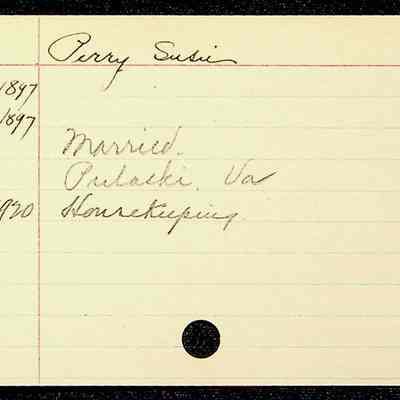 Perry Susie
1897
1897
Married.
Pulaski, Va
1920 Housekeeping